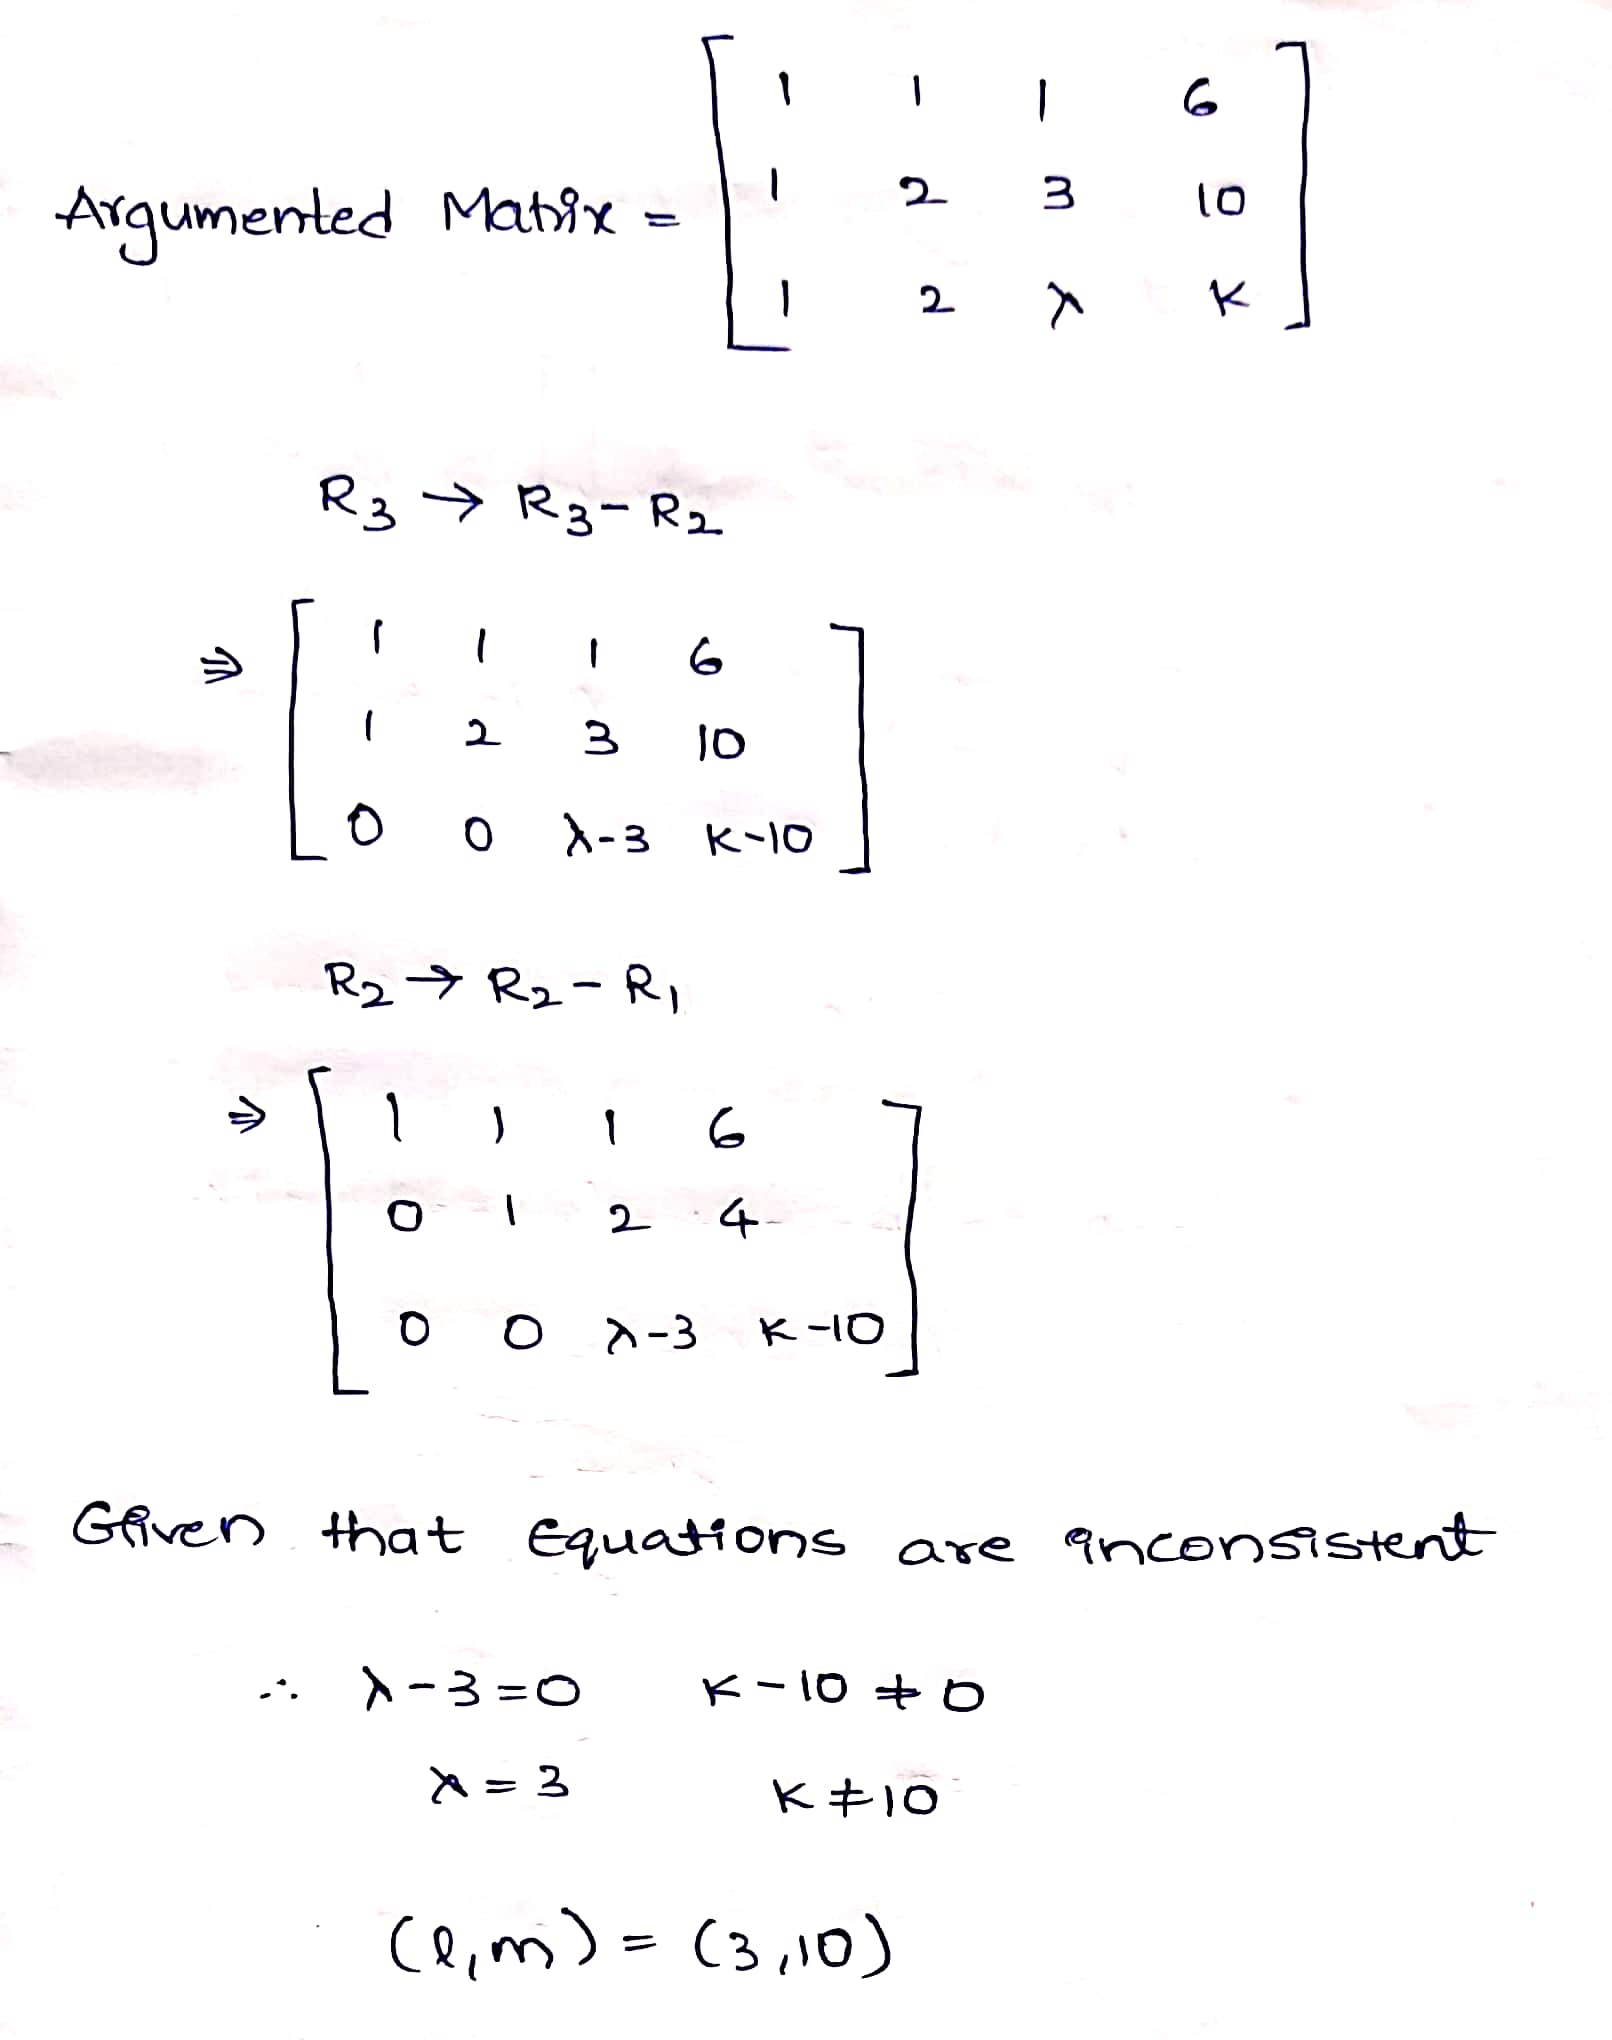 1 1 1 6
Argumented Matrix = 1 2 3 10
1 2 λ K
R3 → R3 - R2
⇒ 1 1 1 6
1 2 3 10
0 0 λ-3 K-10
R2 → R2 - R1
⇒ 1 1 1 6
0 1 2 4
0 0 λ-3 K-10
Given that Equations are inconsistent
∴ λ-3=0 K-10 ≠ 0
λ = 3 K ≠ 10
(l,m) = (3,10)